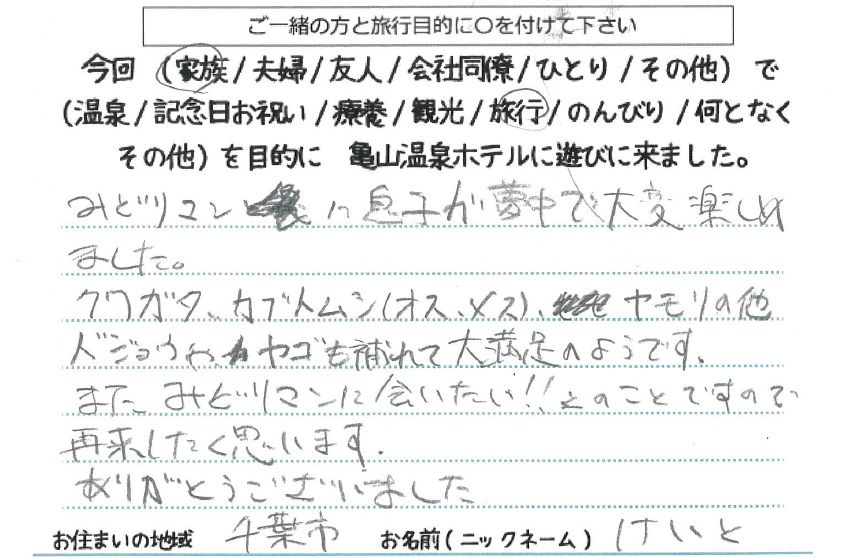 ご一緒の方と旅行目的に○を付けて下さい
今回 (家族/夫婦/友人/会社同僚/ひとり/その他) で
(温泉/記念日お祝い/療養/観光/旅行/のんびり/何となく
その他) を目的に 亀山温泉ホテルに遊びに来ました。
みどりマン に息子が夢中で大変楽しめ
ました。
クワガタ、カブトムシ(オス、メス)、ヤモリの他
ドジョウや、ヤゴも捕れて大満足のようです。
また、みどりマンに会いたい!!とのことですので
再来したく思います。
ありがとうございました
お住まいの地域 千葉市 お名前(ニックネーム) けいと